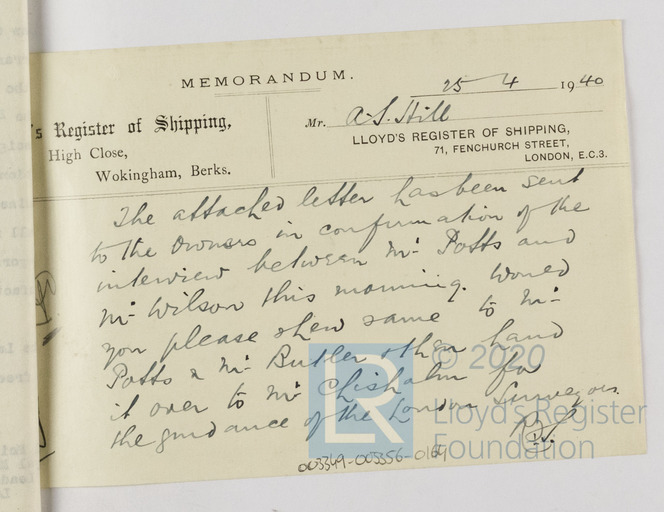 MEMORANDUM.
25 4 1940
's Register of Shipping,
High Close,
Wokingham, Berks.
Mr. A.S. Hill
LLOYD'S REGISTER OF SHIPPING,
71, FENCHURCH STREET,
LONDON, E.C.3.
The attached letter has been sent
to the Owners in confirmation of the
interview between Mr. Potts and
Mr. Wilson this morning. Would
you please shew same to Mr.
Potts & Mr. Butler & then hand
it over to Mr. Chisholm for
the guidance of the London Surveyors.
003349-005356-0169
LR © 2020
Lloyd's Register
Foundation